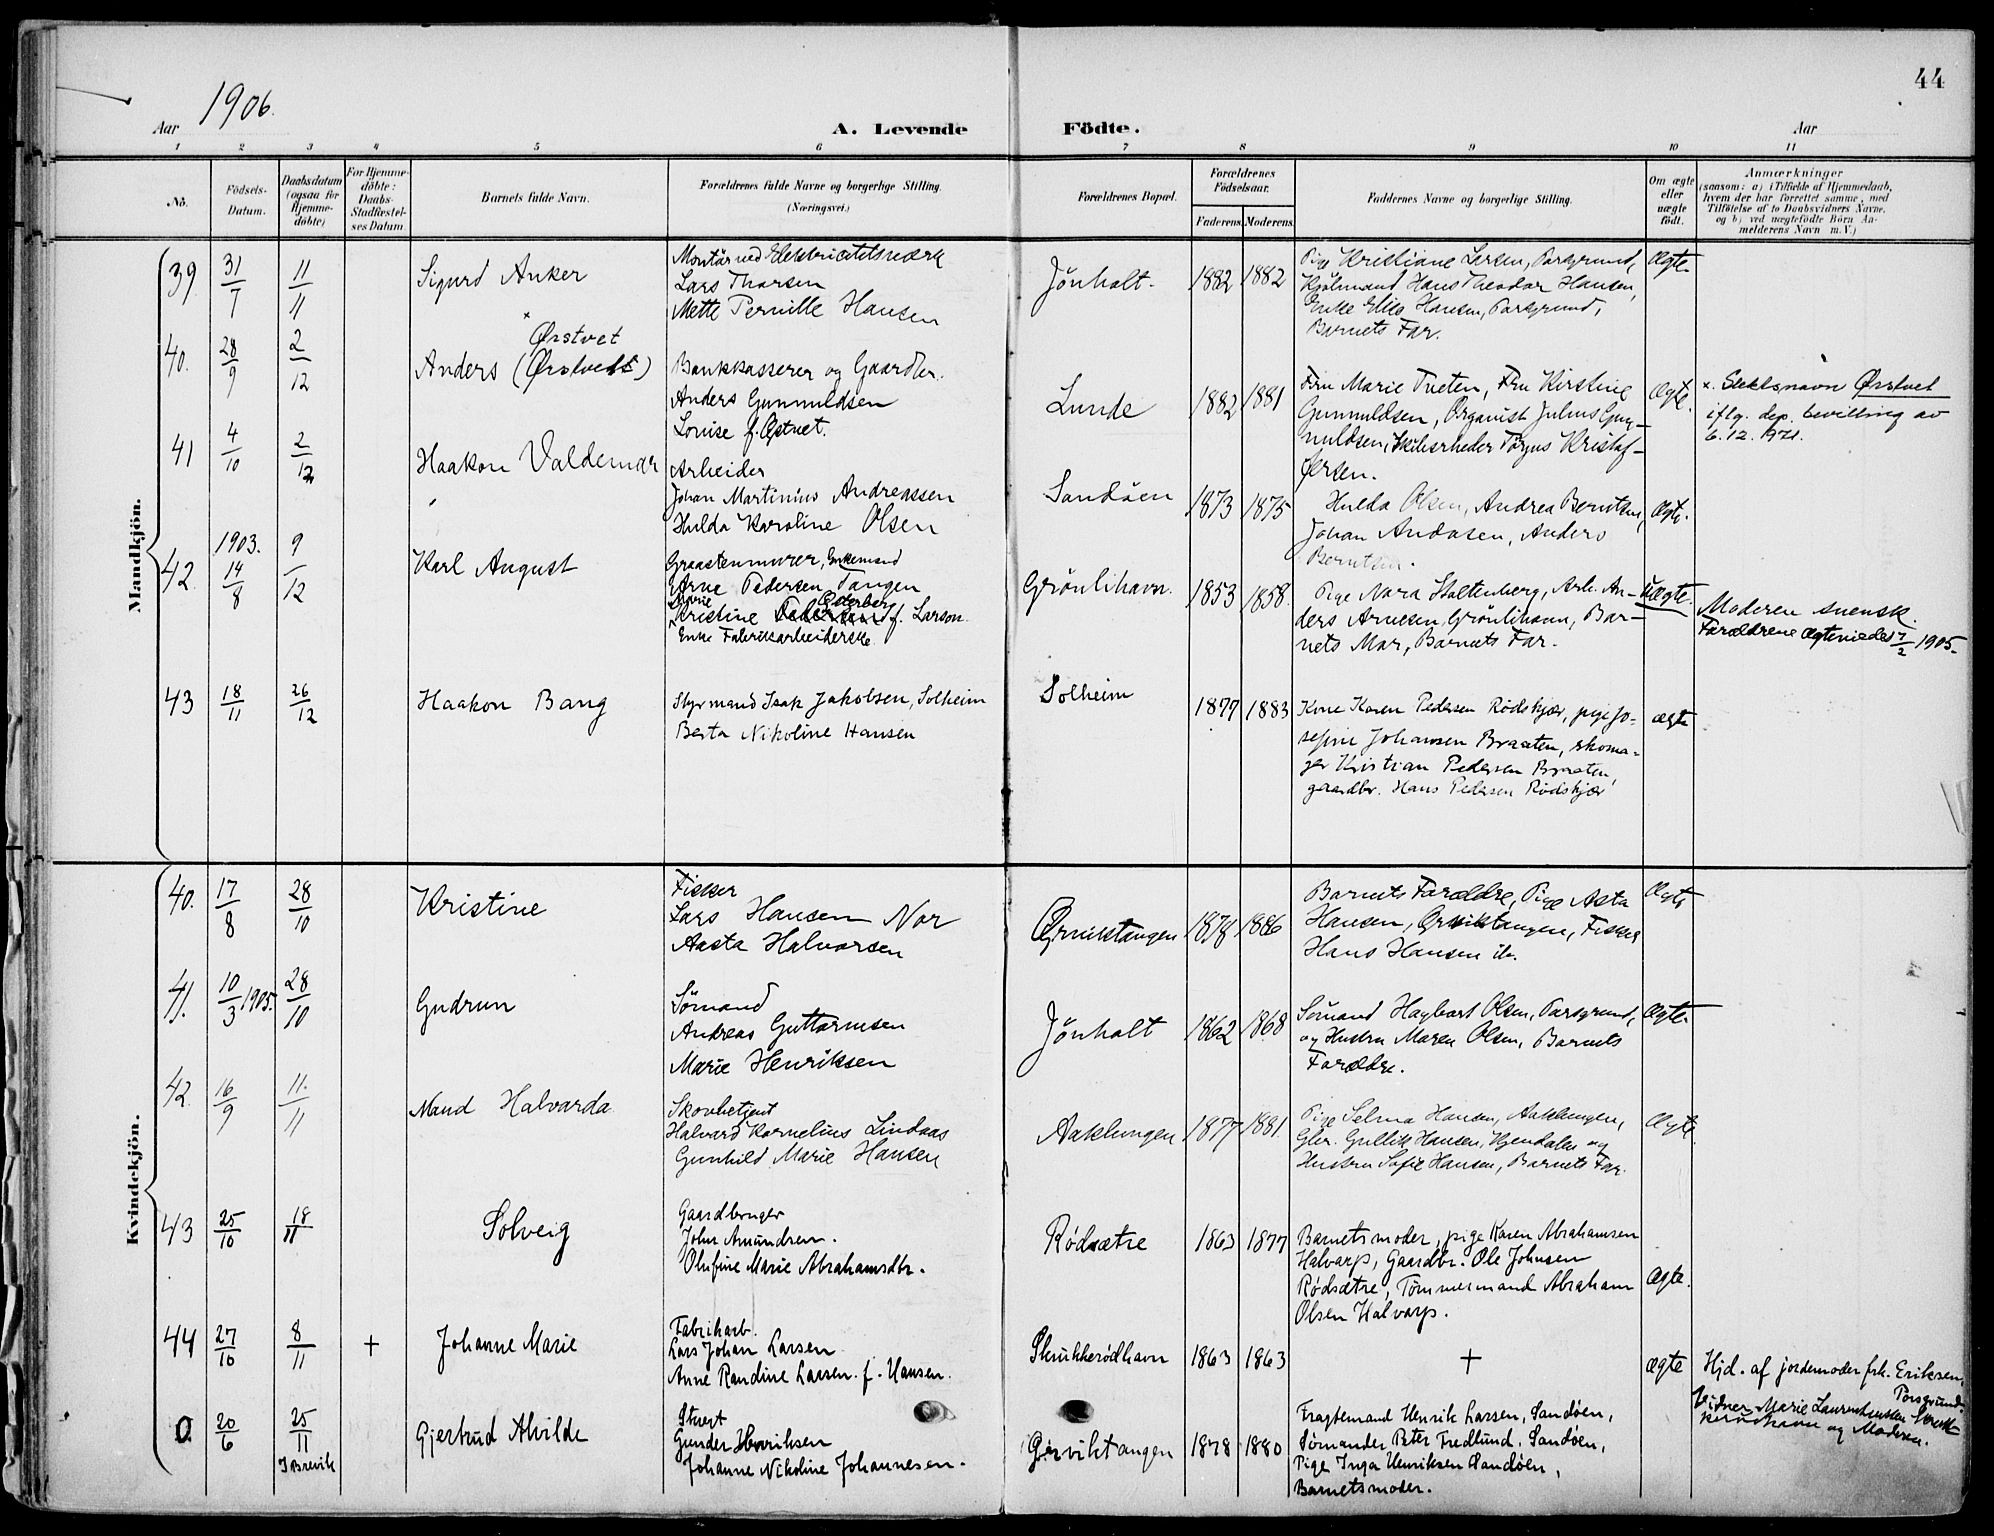 44
Aar 1906. A. Levende Födte. Aar
1 2 3 4 5 6 7 8 9 10 11
No.
Födsels-
Datum.
Daabsdatum
(ogsaa for
Hjemme-
döbte)
For Hjemme-
döbte:
Daabs-
Stadfæstel-
ses Datum
Barnets fulde Navn.
Forældrenes fulde Navne og borgerlige Stilling.
(Næringsvei.)
Forældrenes Bopæl.
Forældrenes
Födselsaar.
Faderens Moderens
Faddernes Navne og borgerlige Stilling.
Om ægte
eller
uægte
födt.
Anmærkninger
(saasom: a) i Tilfælde af Hjemmedaab,
hvem der har forrettet samme, med
Tilföielse af to Daabsvidners Navne,
og b) ved uægtefödte Börn An-
melderens Navn m. V.)
Mandkjön.
39 31/7 11/11
Sigurd Anker
Montør ved Elektricitetsværk
Lars Thorsen
Mette Pernille Hansen
Jönholt.
1882 1882
Pige Kristiane Larsen, Porsgrund,
Kjölmand Hans Theodor Hansen,
Enke Elise Hansen, Porsgrund,
Barnets Far.
Ægte.
40. 28/9 2/12
× Ørstvet
Anders (Ørstvedt)
Bankkasserer og Gaardbr.
Anders Gunnuldsen
Louise f. Østvet.
Lunde
1882 1881
Fru Marie Tveten, Fru Kirstine
Gunnuldsen, Organist Julius Gun-
nuldsen, Skibsrheder Torgus Kristof-
fersen.
Ægte.
x. Slektsnavn Ørstvet
iflg. dep. bevilling av
6.12.1921.
41 4/10 2/12
Haakon Valdemar
Arbeider
Johan Martinius Andreassen
Hulda Karoline Olsen
Sandöen
1873 1875
Hulda Olsen, Andrea Berntsen,
Johan Andasen, Anders
Berntsen.
Ægte.
42. 1903. 14/8 9/12
Karl August
Graastenmurer, Enkemand
Arne Pedersen Tangen
Marie Cederberg
Kristine f. Larson.
Enke Fabriksarbeiderske
Grönlihavn.
1853 1858.
Pige Nora Stoltenberg, Arb. An-
ders Arnesen, Grönlihavn, Bar-
nets Mor, Barnets Far.
Uægte.
Moderen svensk.
Forældrene ægteviedes 7/2 1905.
43 18/11 26/12
Haakon Bang
Styrmand Isak Jakobsen, Solheim
Berta Nikoline Hansen
Solheim
1877 1883
Kone Karen Pedersen Rödskjær, pige Jo-
sefine Johansen Braaten, skoma-
ger Kristian Pedersen Braaten,
gaardbr. Hans Pedersen Rödskjær
ægte
Kvindekjön.
40. 17/8 28/10
Kristine
Fisker
Lars Hansen Nor
Aasta Halvorsen
Ørvikstangen
1878 1886
Barnets Forældre, Pige Asta
Hansen, Ørvikstangen, Fisker
Hans Hansen ib.
Ægte
41. 10/3 1905. 28/10
Gudrun
Sömand
Andreas Guttormsen
Marie Henriksen
Jönholt
1862 1868
Sömand Hagbart Olsen, Porsgrund,
og Hustru Maren Olsen, Barnets
Forældre.
Ægte.
42 16/9 11./11
Maud Halvarda
Skovbetjent
Halvard Kornelius Lindaas
Gunhild Marie Hansen
Aaklungen
1877 1881.
Pige Selma Hansen, Aaklungen,
Gbr. Gullik Hansen, Hjendalen og
Hustru Sofie Hansen, Barnets Far.
Ægte.
43 25/10 18/11
Solveig
Gaardbruger
John Amundsen.
Olufine Marie Abrahamsdtr.
Rødsætre
1863 1877
Barnets moder, pige Karen Abrahamsen
Halvarp, Gaardbr. Ole Johnsen
Rødsætre, Tømmermand Abraham
Olsen Halvarp.
Ægte.
44 27/10 8/11 +
Johanne Marie
Fabrikarb.
Lars Johan Larsen
Anne Randine Larsen. f. Hansen.
Skrukkerødhavn
1863 1863
+
ægte
Hjd. af jordemoder frk. Eriksen,
Porsgrund.
Vidner Marie Laurentsen Skruk-
kerødhavn og Moderen.
0. 20/6 25/11
I Brevik
Gjertrud Alvilde
Stuert
Gunder Henriksen
Johanne Nikoline Johannesen.
Ørviktangen
1878 1880
Fragtemand Henrik Larsen, Sandøen,
Sømanden Peter Fredlund, Sandøen,
Pige Inga Henriksen Sandøen,
Barnets moder.